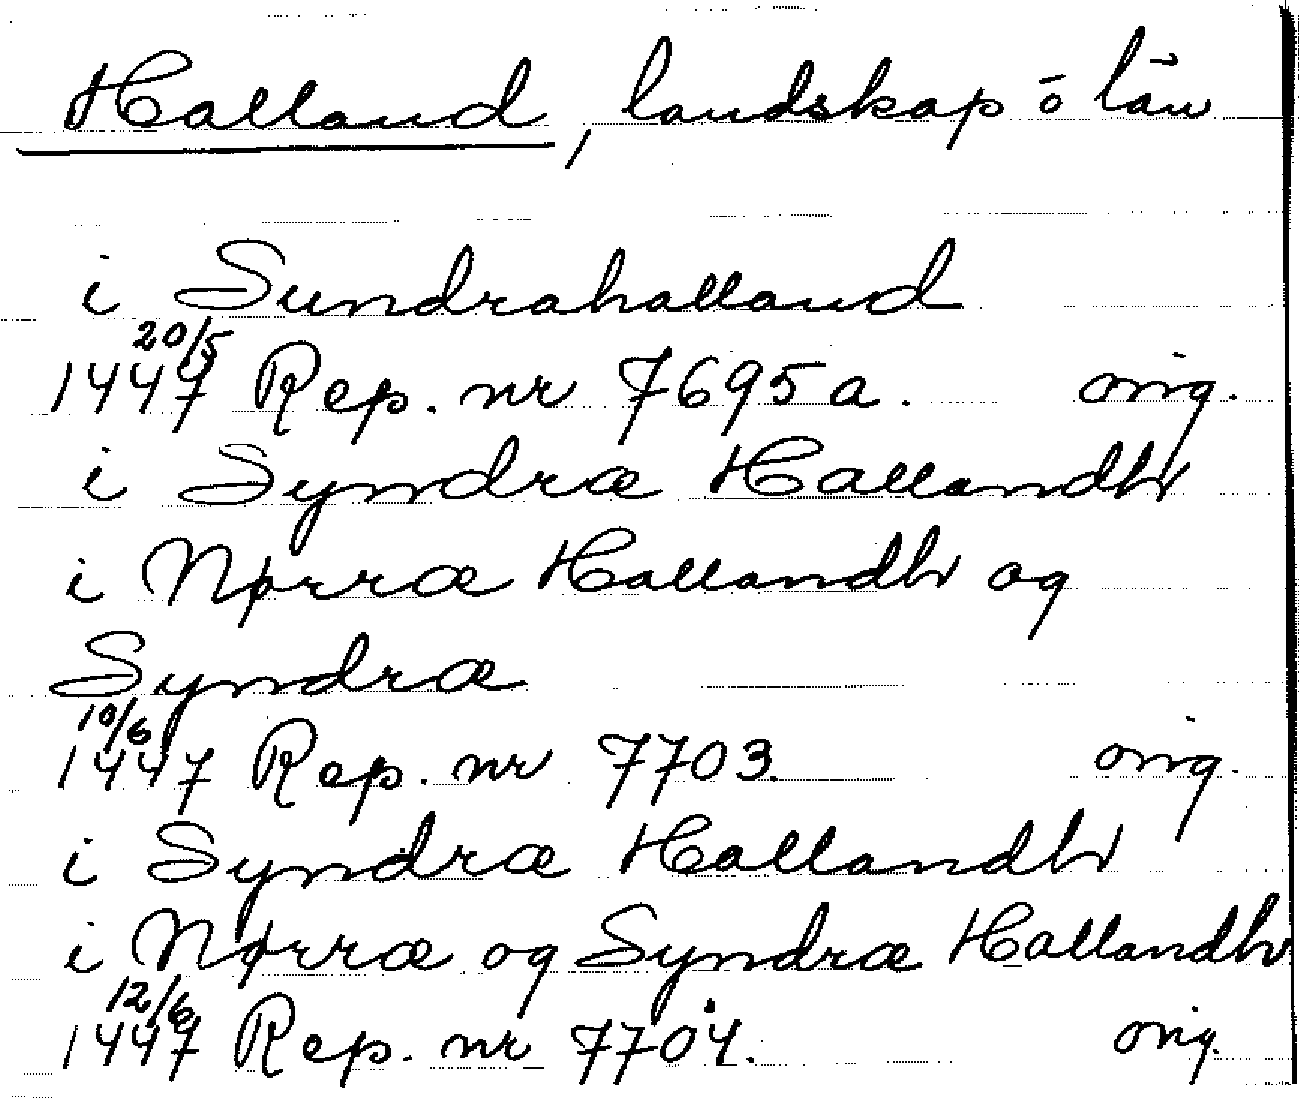 Halland, landskap o län
i Sundrahalland
20/5
1447 Rep. nr 7695a. orig.
i Syndræ Hallandh
i Nørræ Hallandh og
Syndræ
10/6
1447 Rep. nr 7703. orig.
i Syndræ Hallandh
i Nørræ og Syndræ Hallandh
12/6
1447 Rep. nr 7704. orig.